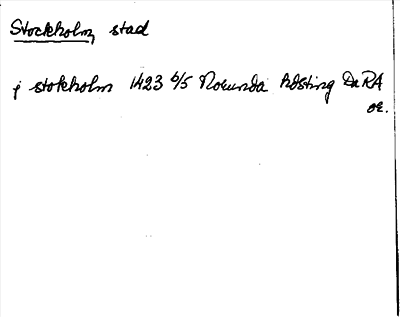 Stockholm, stad
j stokholm 1423 6/5 Norunda hösting DaRA
or.